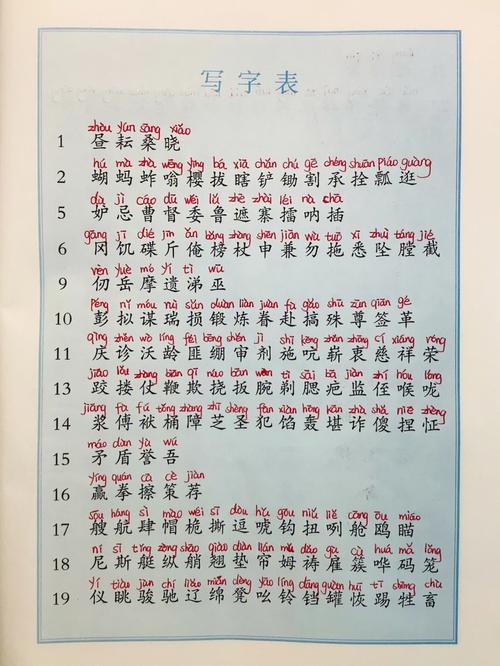 写字表
zhòu yún sāng xiǎo
1 昼耘桑晓
hú mà zhà wēng yīng bá xiā chǎn chú gē chéng shuān piáo guàng
2 蝴蚂蚱嗡樱拔瞎铲锄割承拴瓢逛
dù jì cáo dū wěi lǔ zhē zhài léi nà chā
5 妒忌曹督委鲁遮寨擂呐插
gāng jī dié jīn ǎn bǎng zhàng shēn jiān wù tuō xī zhuì táng jié
6 冈饥碟斤俺榜杖申兼勿拖悉坠膛截
rèn yuè mó yí tì wū
9 仞岳摩遗涕巫
péng nǐ móu ruì sǔn duàn liàn juàn fù gǎo shū zūn qiān gé
10 彭拟谋瑞损锻炼眷赴搞殊尊签革
qìng zhěn wò líng fěi bēng shěn jì shī kēng zhǎn zhōng cí xiáng róng
11 庆诊沃龄匪绷审剂施吭崭衷慈祥荣
jiǎo lǒu zhàng biān qī náo bān wàn tì sāi bā jiān zhí hóu lóng
13 跤搂仗鞭欺挠扳腕剃腮疤监侄喉咙
jiāng fù fú tǒng zhàng zhī shèng fàn xiàn hōng kān zhà shǎ niē zhèng
14 浆傅袱桶障芝圣犯馅轰堪诈傻捏怔
máo dùn yù wú
15 矛盾誉吾
yíng quán cā cè jiàn
16 赢拳擦策荐
sōu háng sì mào wéi sī dòu hǔ gōu niǔ liě cāng ōu miáo
17 艘航肆帽桅撕逗唬钩扭咧舱鸥瞄
ní sī tǐng zòng shāo qiào diàn lián mǔ dǎo gù cù huá mǎ lóng
18 尼斯艇纵艄翘垫帘姆祷雇簇哗码笼
yí tiào jùn chí liáo mián dèng yāo líng dāng guàn huī tī shēng chù
19 仪眺骏驰辽绵凳吆铃铛罐恢踢牲畜